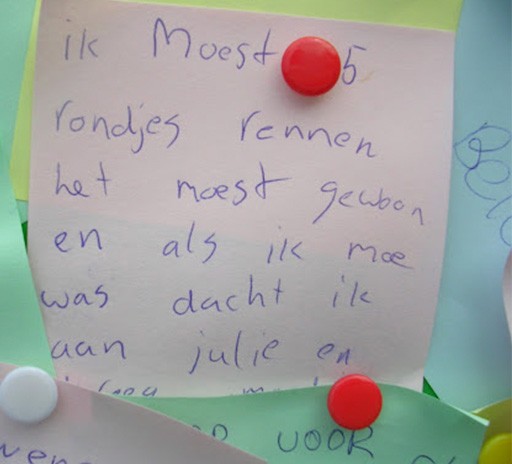 ik Moest 5
rondjes rennen
het moest gewoon
en als ik moe
was dacht ik
aan julie en
VOOR